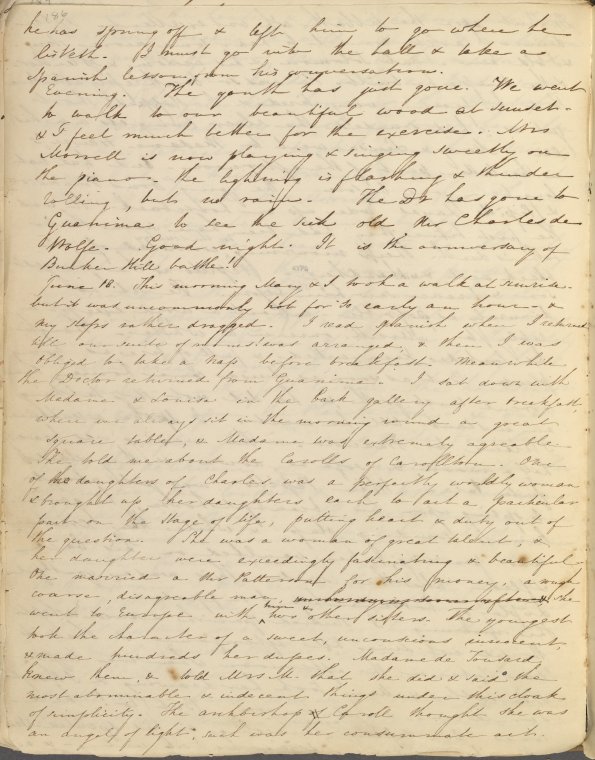 189
he has sprung off & left him to go where he
listeth. I must go into the hall & take a
Spanish lesson from his conversation.
Evening. The youth has just gone. We went
to walk to our beautiful wood at sunset.
& I feel much better for the exercise. Mrs
Morrell is now playing & singing sweetly on
the piano. The lightning is flashing & thunder
rolling, but no rain. The Dr has gone to
Guanima to see the sick old Mr Charles de
Wolfe. Good night. It is the anniversary of
Bunker Hill battle!
June 18. This morning Mary & I took a walk at sunrise.
but it was uncommonly hot for so early an hour &
my steps rather dragged. I read Spanish when I returned
till our suite of rooms was arranged, & then I was
obliged to take a nap before breakfast. Meanwhile
the Doctor returned from Guanima. I sat down with
Madame & Louisa in the back gallery after breakfast,
where we always sit in the morning round a great
square table, & Madame was extremely agreeable
She told me about the Carolls of Carollton. One
of the daughters of Charles was a perfectly worldly woman
& brought up her daughters each to act a particular
part on the stage of life, putting heart & duty out of
the question. She was a woman of great talent, &
her daughters were exceedingly fascinating & beautiful.
One married a Mr Patterson for his money, a rough
coarse, disagreeable man, She
went to Europe with two other sisters. The youngest
took the character of a sweet, unconscious innocent,
& made hundreds her dupes. Madame de Tousard
knew them, & told Mrs. M. that she did & said the
most abominable & indecent things under this cloak
of simplicity. The archbishop & Caroll thought she was
an angel of light, such was her consummate art.